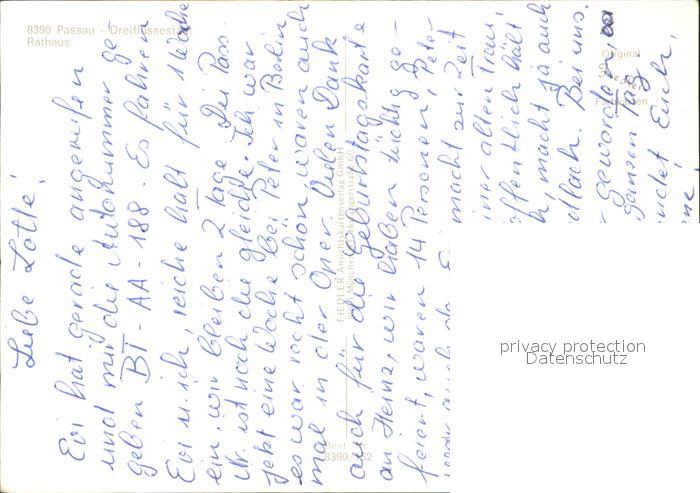 8390 Passau - Dreiflüssestadt
Rathaus
Liebe Lotte!
Evi hat gerade angerufen
und mir die Autonummer ge-
geben BT-AA-188. Es fahren
Evi u. ich, reiche halt für 1 Woche
ein, wir bleiben 2 Tage. Die Pass
Nr. ist noch die gleiche. Ich war
jetzt eine Woche bei Peter in Berlin
es war recht schön, waren auch
mal in der Oper. Vielen Dank
auch für die Geburtstagskarte
an Heinz, wir haben tüchtig ge-
feiert, waren 14 Personen, Peter
macht zur Zeit
iner alten Traum,
offentlich hält
h, macht ja auch
llach. Bei uns.
r geworden,
ganzen Tag
ndet Euch,
me,
Original
Farbkarten
FIEDLER Ansichtskartenverlag GmbH
Best. Nr.
8390/152
privacy protection
Datenschutz